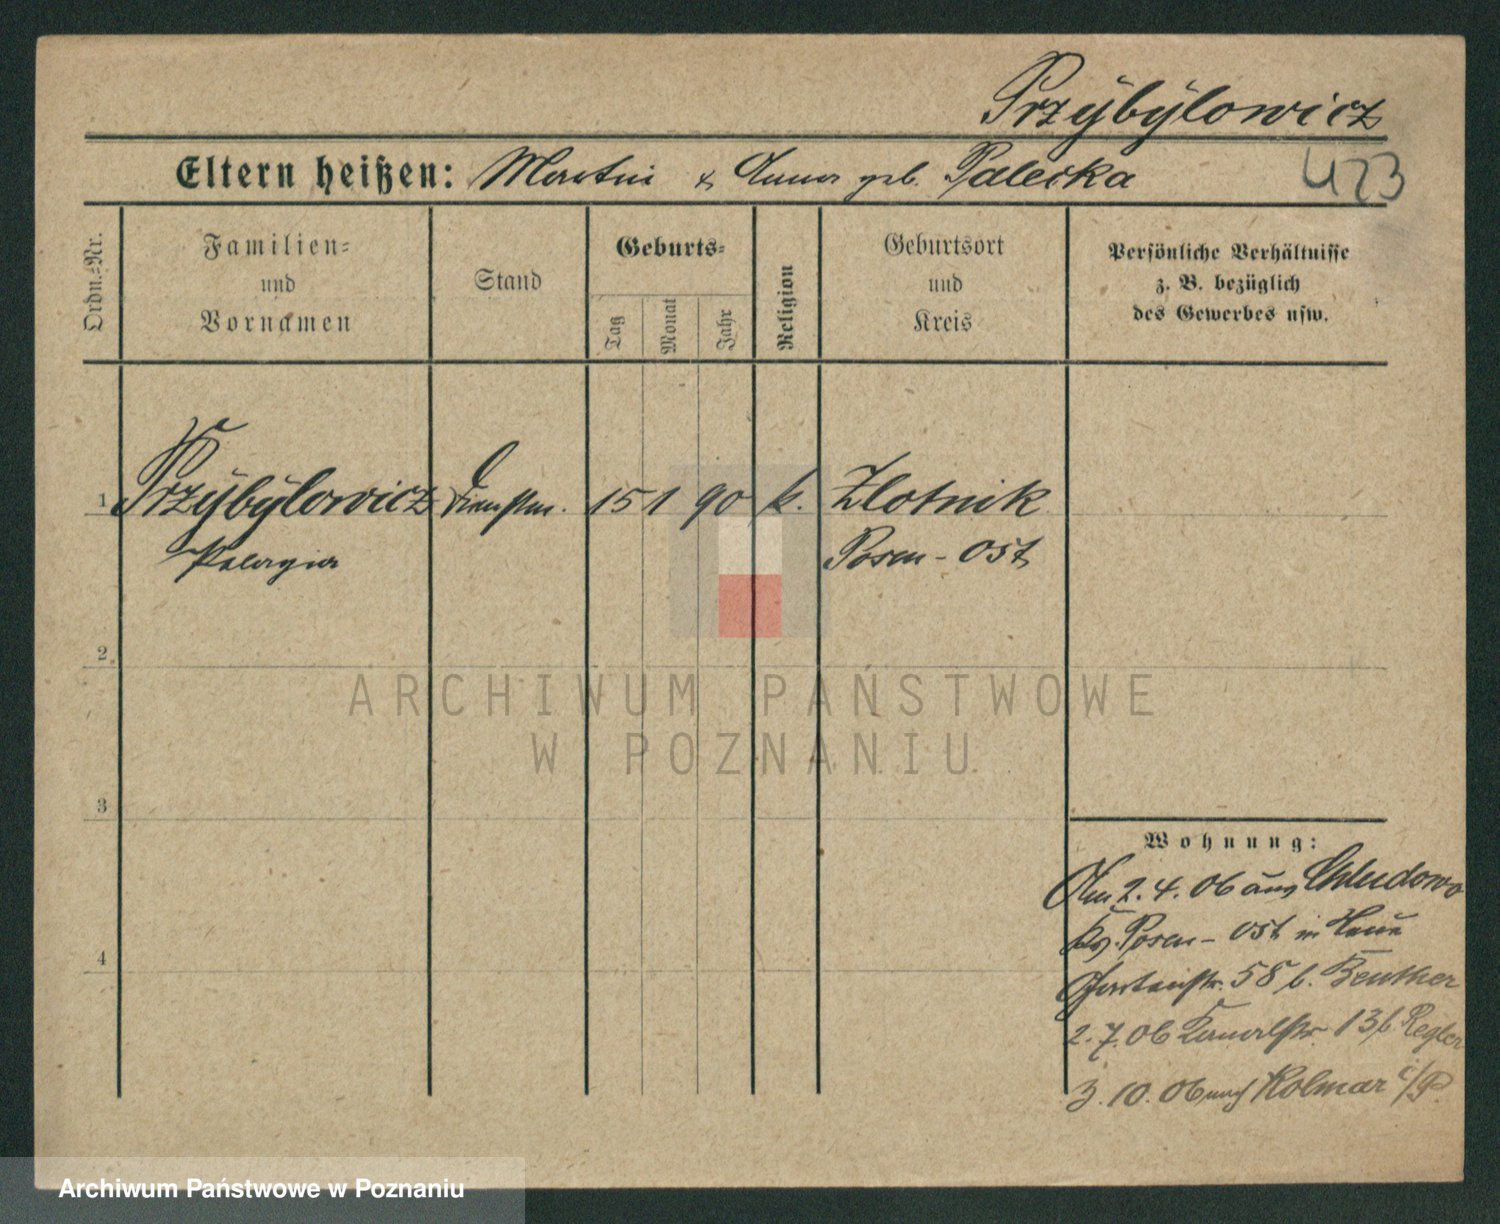 Przÿbÿlowicz
Eltern heißen: Martin & Anna geb. Paleska
423
Ordn.=Nr.
Familien=
und
Vornamen
Stand
Geburts=
Tag
Monat
Jahr
Religion
Geburtsort
und
Kreis
Persönliche Verhältnisse
z. B. bezüglich
des Gewerbes usw.
1 Przÿbÿlowicz Dienstm. 15 1 90 k. Zlotnik
Pelagia Posen - Ost
2
3
4
Wohnung:
Am 2. 4. 06 aus Chludowo
Kr. Posen - Ost in
Gartenstr. 58 b. Beuther
2. 7. 06 Kanalstr. 13 b. Regler
3. 10. 06 nach Kolmar i/P.
ARCHIWUM PAŃSTWOWE
W POZNANIU
Archiwum Państwowe w Poznaniu